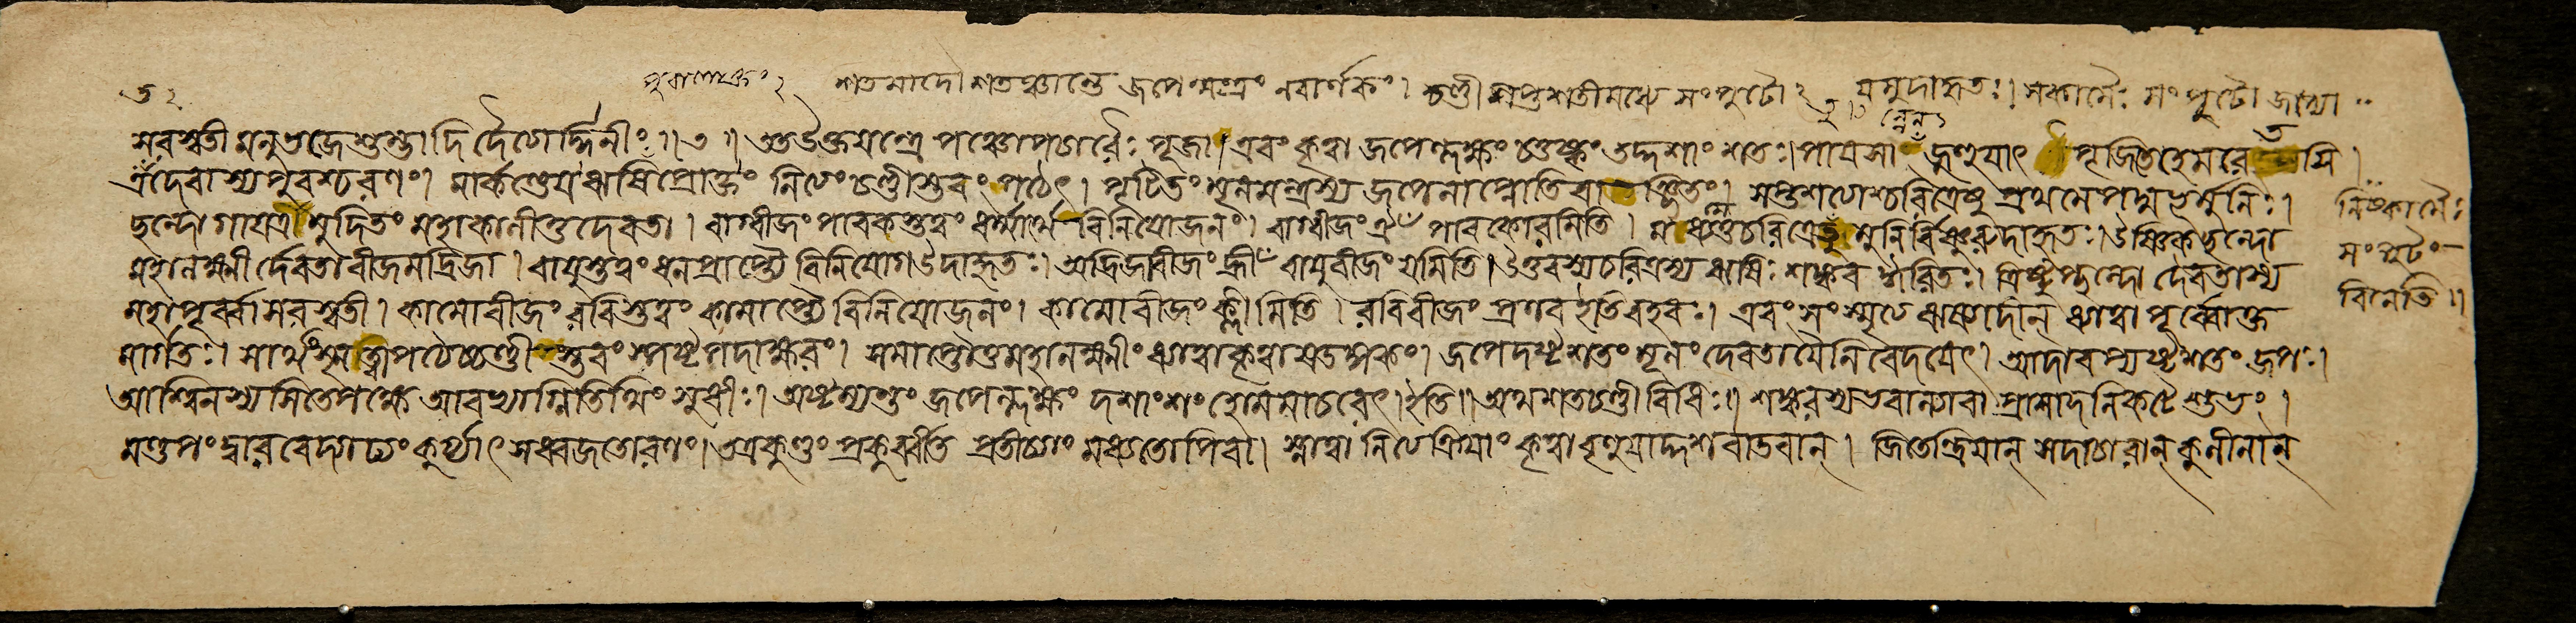 শতমাদৌ শতঞ্চান্তে জপেন্মন্ত্রং নবার্ণকং। চণ্ডী সপ্তশতীমধ্যে সংপুটো সমুদাহৃতঃ। সকামৈঃ সংপুটো জাপ্য
সরস্বতী মনুভজে শুম্ভাদি দৈত্যর্দ্দিনীং॥৩॥ পঞ্চোপচারৈঃ পূজা। এবং কৃত্বা জপেল্লক্ষং চতুষ্কং তদ্দশাংশতঃ। পায়সা জুহুয়াৎ পূজিতে হেমরেতসি।
মার্কণ্ডেয় ঋষি প্রোক্তং নিত্যং চণ্ডীস্তবং পঠেৎ। পুটিতং মূলমন্ত্রস্য জপেনাপ্নোতি বাঞ্ছিতং। সপ্তশত্যাশ্চরিত্রেষু প্রথমে পদ্মভূর্মুনিঃ।
ছন্দো গায়ত্রীমুদিতং মহাকালী তু দেবতা। বাগ্বীজং পাবকস্তত্ত্বং ধর্ম্মার্থে বিনিয়োজনং। বাগ্বীজং ঐঁ পাবকোরমিতি। মধ্যম চরিত্রে মুনির্বিষ্ণুরুদাহৃতঃ। উষ্ণিক্ ছন্দো
মহালক্ষ্মী র্দেবতা বীজমদ্রিজা। বায়ুস্তত্ত্বং ধনপ্রাপ্ত্যৈ বিনিয়োগ উদাহৃতঃ। অদ্রিজাবীজং হ্রীঁ বায়ুবীজং যমিতি। উত্তরস্য চরিত্রস্য ঋষিঃ শঙ্কর ঈরিতঃ। ত্রিষ্টুপ্ছন্দো দেবতাস্য
মহাপূর্ব্বা সরস্বতী। কামোবীজং রবিস্তত্ত্বং কামাপ্ত্যৈ বিনিয়োজনং। কামোবীজং ক্লীমিতি। রবিবীজং প্রণব ইতি বহবঃ। এবং সংস্মৃত্য ঋষ্যাদীন্ ধ্যাত্বা পূর্ব্বোক্ত
মার্গতঃ। সার্থং স্মৃত্বা পঠেচ্চণ্ডী স্তবং স্পষ্টপদাক্ষরং। সমাপ্তৌ তু মহালক্ষ্মীং ধ্যাত্বা কৃত্বা ষড়ঙ্গকং। জপেদষ্টশতং মূলং দেবতায়ৈ নিবেদয়েৎ। আদাবপ্যষ্টশতং জপঃ।
আশ্বিনস্য সিতে পক্ষে আরভ্যাগ্নিতিথিং সুধীঃ। অষ্টম্যন্তং জপেল্লক্ষং দশাংশং হোমমাচরেৎ। ইতি॥ অথ শতচণ্ডী বিধিঃ॥ শঙ্করস্য ভবান্যা বা প্রাসাদনিকটে শুভং।
মণ্ডপং দ্বারবেদ্যাঢ্যং কুর্য্যাৎ সধ্বজতোরণং। তত্র কুণ্ডং প্রকুর্ব্বীত প্রতীচ্যাং মধ্যতোপি বা। স্নাত্বা নিত্যক্রিয়াং কৃত্বা বৃণুয়াদ্দশ বাডবান্। জিতেন্দ্রিয়ান্ সদাচারান্ কুলীনান্
নিষ্কামৈঃ
সংপুটং
বিনেতি॥